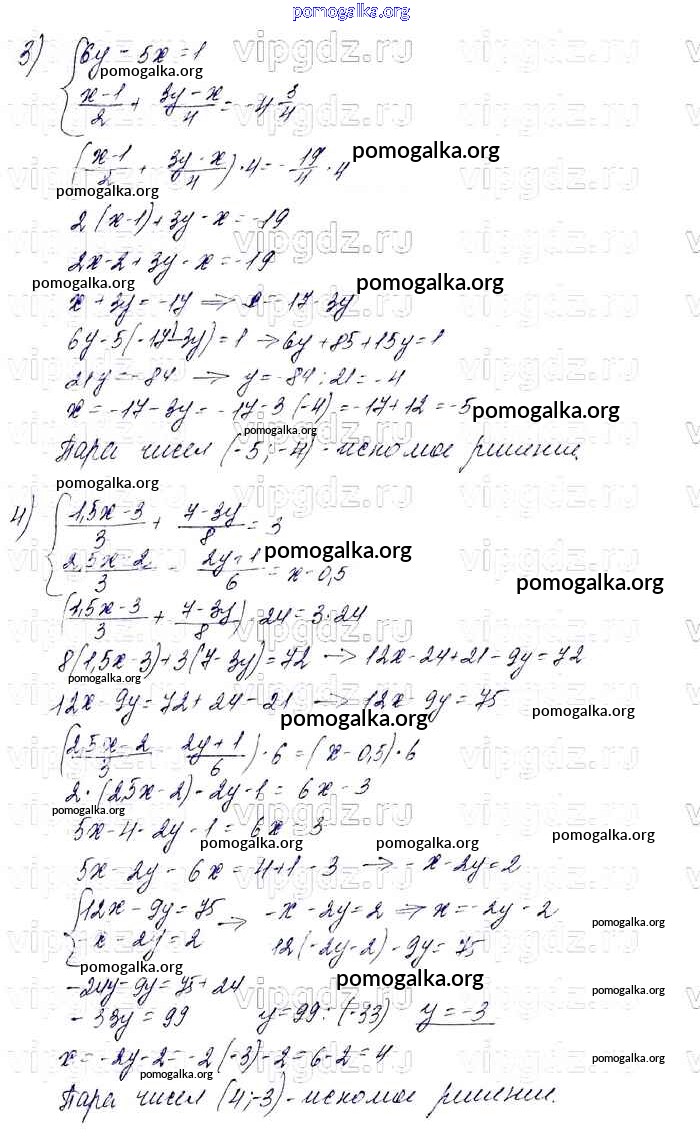 pomogalka.org
3) { 6y - 5x = 1
pomogalka.org
(x-1)/2 + (3y-x)/4 = -4 3/4
((x-1)/2 + (3y-x)/4) · 4 = -19/4 · 4
pomogalka.org
pomogalka.org
2(x-1) + 3y - x = -19
2x - 2 + 3y - x = -19
pomogalka.org
pomogalka.org
x + 3y = -17 ⇒ x = -17 - 3y
6y - 5(-17 - 3y) = 1 → 6y + 85 + 15y = 1
21y = -84 → y = -84 : 21 = -4
x = -17 - 3y = -17 - 3(-4) = -17 + 12 = -5
pomogalka.org
pomogalka.org
Пара чисел (-5; -4) - искомое решение.
pomogalka.org
4) { (1,5x-3)/3 + (7-3y)/8 = 3
pomogalka.org
(2,5x-2)/3 - (2y+1)/6 = x - 0,5
pomogalka.org
((1,5x-3)/3 + (7-3y)/8) · 24 = 3·24
8(1,5x-3) + 3(7-3y) = 72 → 12x - 24 + 21 - 9y = 72
pomogalka.org
12x - 9y = 72 + 24 - 21 → 12x - 9y = 75
pomogalka.org
pomogalka.org
((2,5x-2)/3 - (2y+1)/6) · 6 = (x - 0,5) · 6
2 · (2,5x - 2) - 2y - 1 = 6x - 3
pomogalka.org
5x - 4 - 2y - 1 = 6x - 3
pomogalka.org
pomogalka.org
pomogalka.org
5x - 2y - 6x = 4 + 1 - 3 → -x - 2y = 2
{ 12x - 9y = 75 → -x - 2y = 2 ⇒ x = -2y - 2
pomogalka.org
-x - 2y = 2 12(-2y-2) - 9y = 75
pomogalka.org
pomogalka.org
-24y - 9y = 75 + 24
pomogalka.org
-33y = 99 y = 99 : (-33) y = -3
x = -2y - 2 = -2(-3) - 2 = 6 - 2 = 4
pomogalka.org
pomogalka.org
Пара чисел (4; -3) - искомое решение.